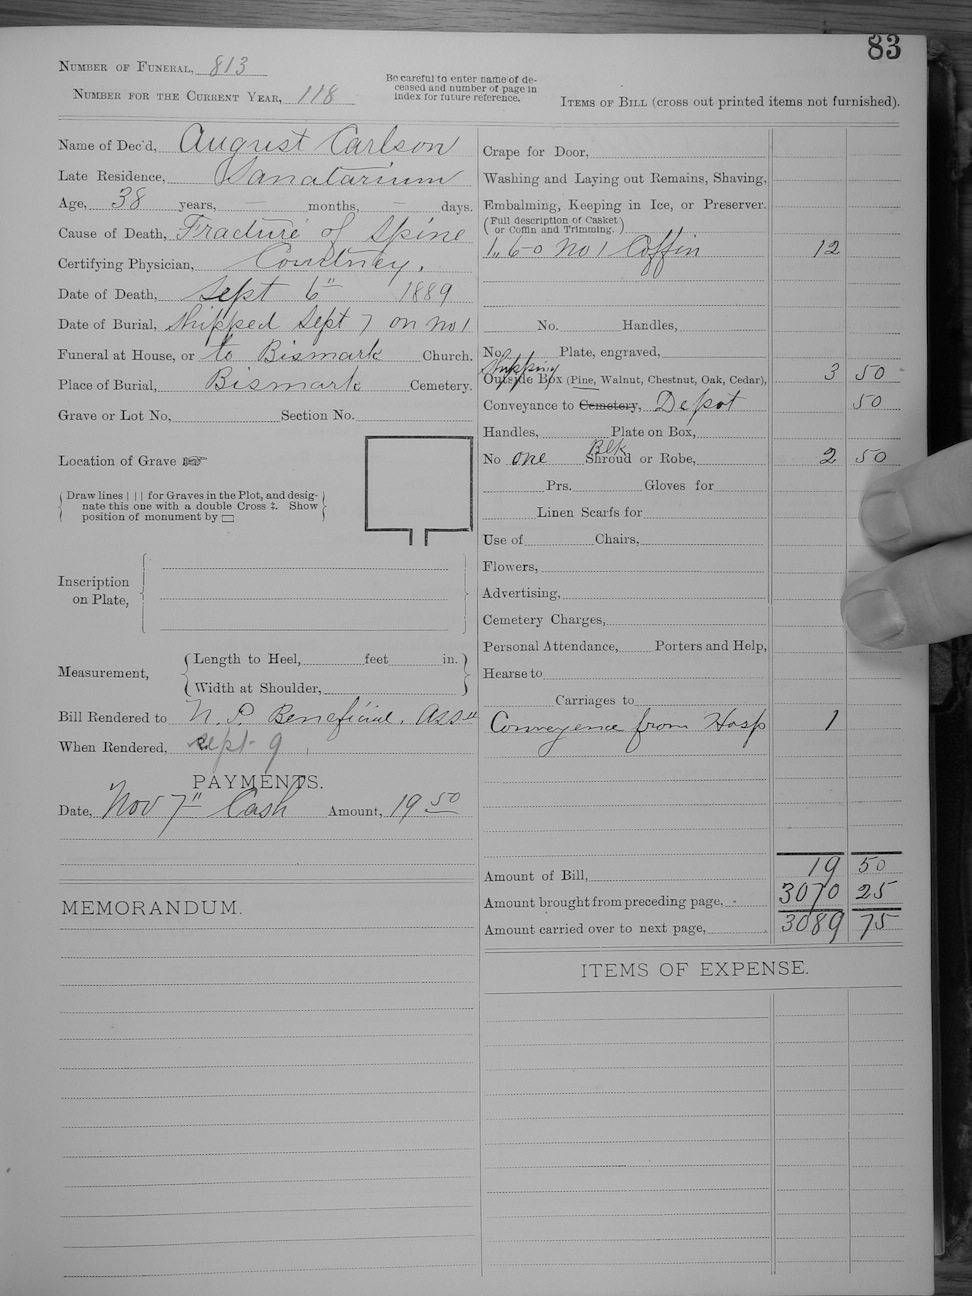 83
Number of Funeral, 813
Number for the Current Year, 118
Be careful to enter name of de-
ceased and number of page in
index for future reference.
Items of Bill (cross out printed items not furnished).
Name of Dec'd, August Carlson
Late Residence, Sanatarium
Age, 38 years, — months, — days.
Cause of Death, Fracture of Spine
Certifying Physician, Courtney.
Date of Death, Sept 6" 1889
Date of Burial, Shipped Sept 7 on No 1
Funeral at House, or to Bismark Church.
Place of Burial, Bismark Cemetery.
Grave or Lot No, Section No.
Location of Grave ☞
Draw lines | | | for Graves in the Plot, and desig-
nate this one with a double Cross ‡. Show
position of monument by ▭
Inscription
on Plate,
Measurement,
Length to Heel, feet in.
Width at Shoulder,
Bill Rendered to N. P. Beneficial. Assn
When Rendered, Sept 9
PAYMENTS.
Date, Nov 7" Cash Amount, 19 50
MEMORANDUM.
Crape for Door,
Washing and Laying out Remains, Shaving,
Embalming, Keeping in Ice, or Preserver.
(Full description of Casket
or Coffin and Trimming.)
1, 6-0 No 1 Coffin 12
No. Handles,
No. Plate, engraved,
Shipping
Outside Box (Pine, Walnut, Chestnut, Oak, Cedar), 3 50
Conveyance to Cemetery, Depot 50
Handles, Plate on Box,
Blk
No one Shroud or Robe, 2 50
Prs. Gloves for
Linen Scarfs for
Use of Chairs,
Flowers,
Advertising,
Cemetery Charges,
Personal Attendance, Porters and Help,
Hearse to
Carriages to
Conveyence from Hosp 1
Amount of Bill, 19 50
Amount brought from preceding page, 3070 25
Amount carried over to next page, 3089 75
ITEMS OF EXPENSE.